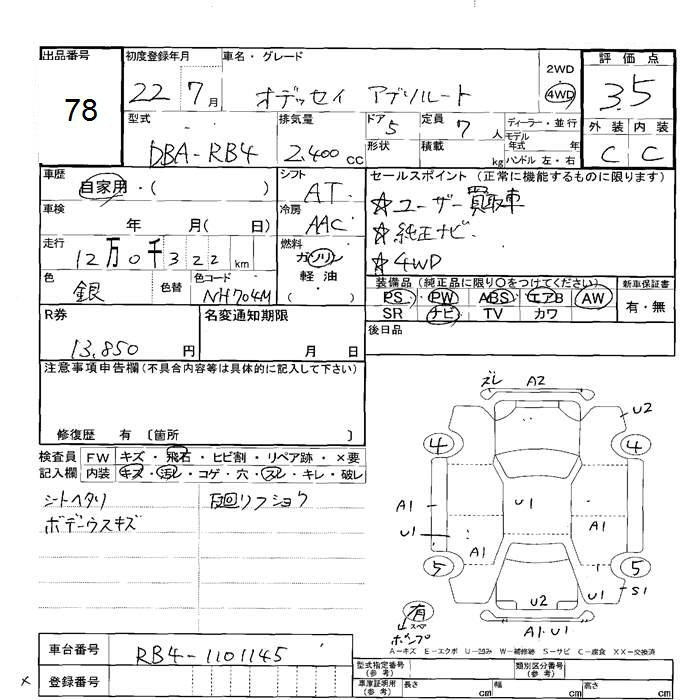 出品番号
78
初度登録年月 車名・グレード 2WD 評価点
22 7月 オデッセイ アブソルート 4WD 3.5
型式 排気量 ドア 5 定員 7人 ディーラー・並行 外装 内装
DBA-RB4 2,400cc 形状 積載 kg モデル年式 年 ハンドル 左・右 C C
車歴 自家用・( ) シフト AT セールスポイント (正常に機能するものに限ります)
☆ユーザー買取車
車検 年 月( 日) 冷房 AAC ☆純正ナビ
走行 12万0千322km 燃料 ガソリン 軽油 ( ) ☆4WD
色 銀 色替 色コード NH704M
装備品 (純正品に限り○をつけてください) 新車保証書
PS PW ABS エアB AW 有・無
SR ナビ TV カワ
R券 13,850円 名変通知期限 月 日 後日品
注意事項申告欄(不具合内容等は具体的に記入して下さい)
修復歴 有 〔箇所 〕
検査員 FW キズ・飛石・ヒビ割・リペア跡・×要
記入欄 内装 キズ・汚レ・コゲ・穴・スレ・キレ・破レ
シートヘタリ
ボデーウスキズ
ズレ A2
U2
4 4
A1 U1 A1
U1 A1
5 5
U2 S1
有
ボンプ A1・U1
A-キズ E-エクボ U-凹み W-補修跡 S-サビ C-腐食 XX-交換済
車台番号 RB4-1101145
型式指定番号(参考) 類別区分番号(参考)
× 登録番号
車庫証明用(参考) 長さ cm 幅 cm 高さ cm